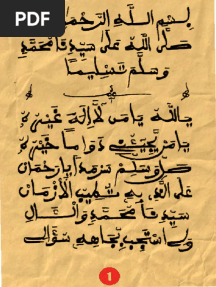 PDF
بسم الله الرحمن
صلى الله على سيدنا محمد
وسلم تسليما
يا الله يا من لا إله غيره
يا من يجيب دواما خيره
صل وسلم سرمدا يا رحمان
على الذي به تطيب الأزمان
سيدنا محمد والآل
واستجب بجاهه سؤالي
1